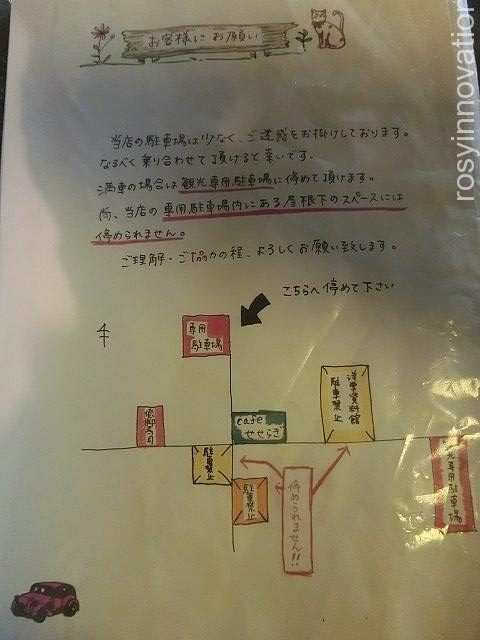 お客様にお願い
当店の駐車場は少なく、ご迷惑をお掛けしております。
なるべく乗り合わせて頂けると幸いです。
満車の場合は観光専用駐車場に停めて頂けます。
尚、当店の専用駐車場内にある屋根下のスペースには
停められません。
ご理解・ご協力の程、よろしくお願い致します。
こちらへ停めて下さい
専用
駐車場
cafe
せせらぎ
洋学資料館
駐車禁止
駐車禁止
駐車禁止
停められません!!
観光専用駐車場
rosyinnovation